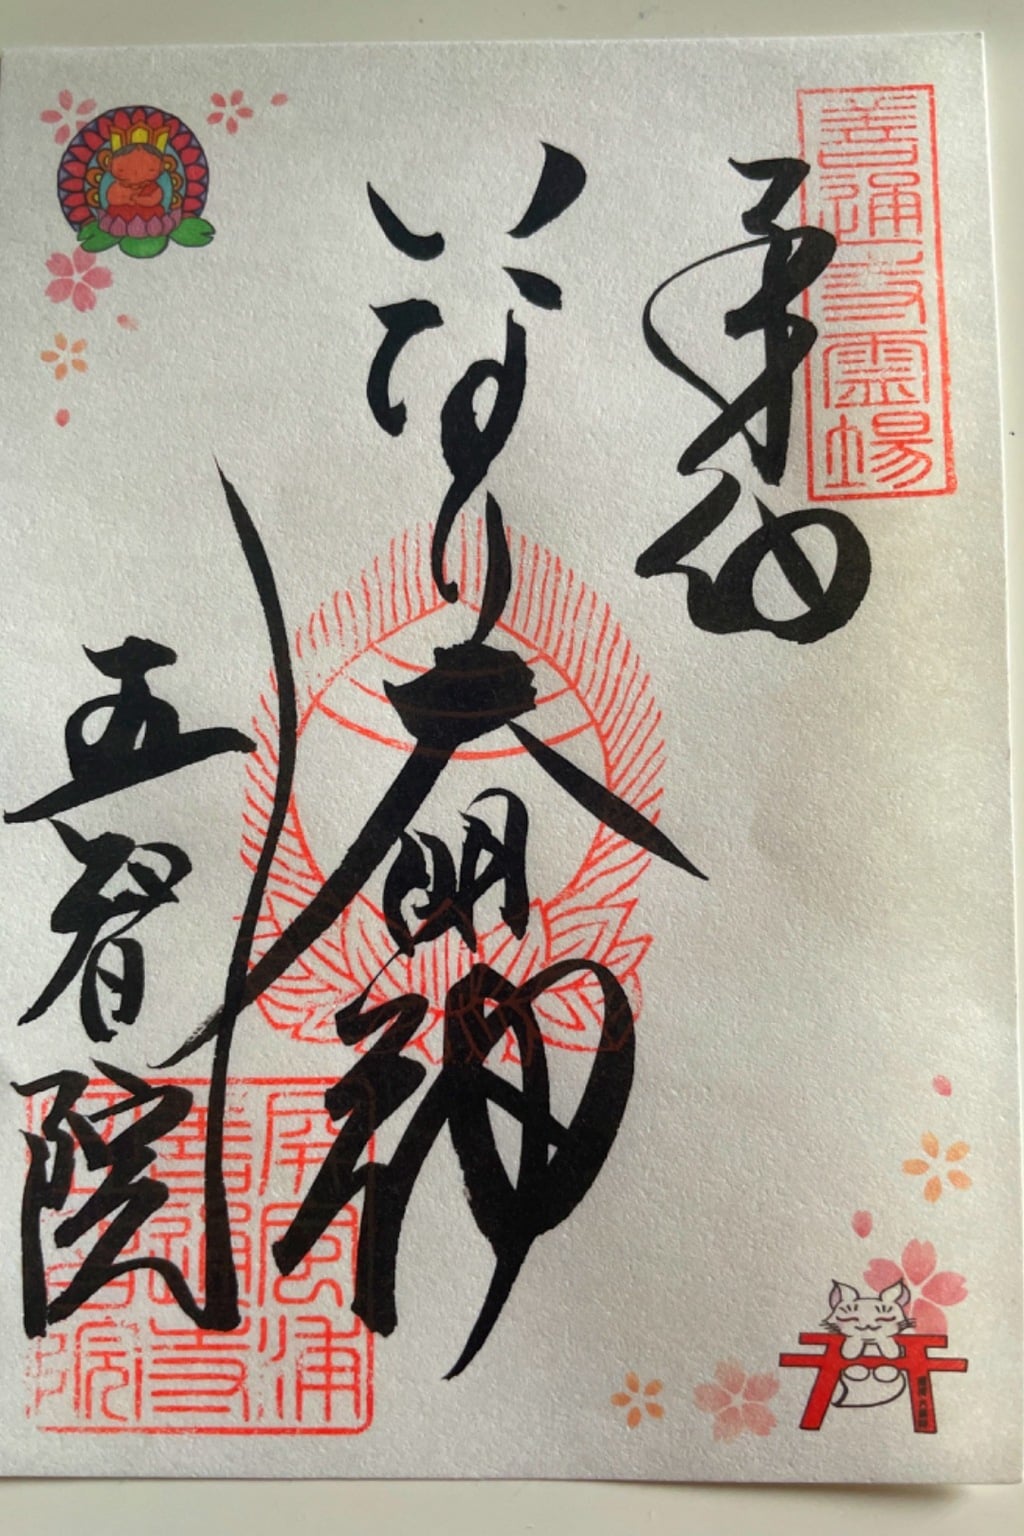 善通寺霊場
いなり大明神
五智院
屏風浦
善通寺
五智院